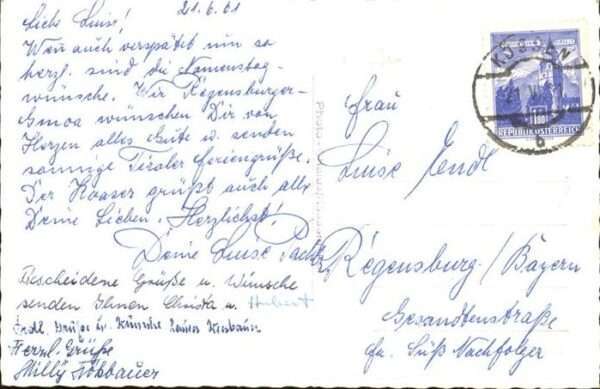 21.6.61
Liebe Luise!
Wenn auch verspätet nun so
herzl. sind die Namenstag-
wünsche. Wir Regensburger-
Gmoa wünschen Dir von
Herzen alles Gute u. senden
sonnige Tiroler Feriengrüße.
Der Haaser grüßt auch alle
Deine Lieben. Herzlichst!
Deine Luise
Bescheidene Grüße u. Wünsche
senden Ihnen Christa u. Hubert
Grüße u. Wünsche
Herzl. Grüße
Willy
Frau
Luise Endl
Regensburg/Bayern
Gesandtenstraße
fa. Süß Nachfolger
KÖSSEN
REPUBLIK ÖSTERREICH